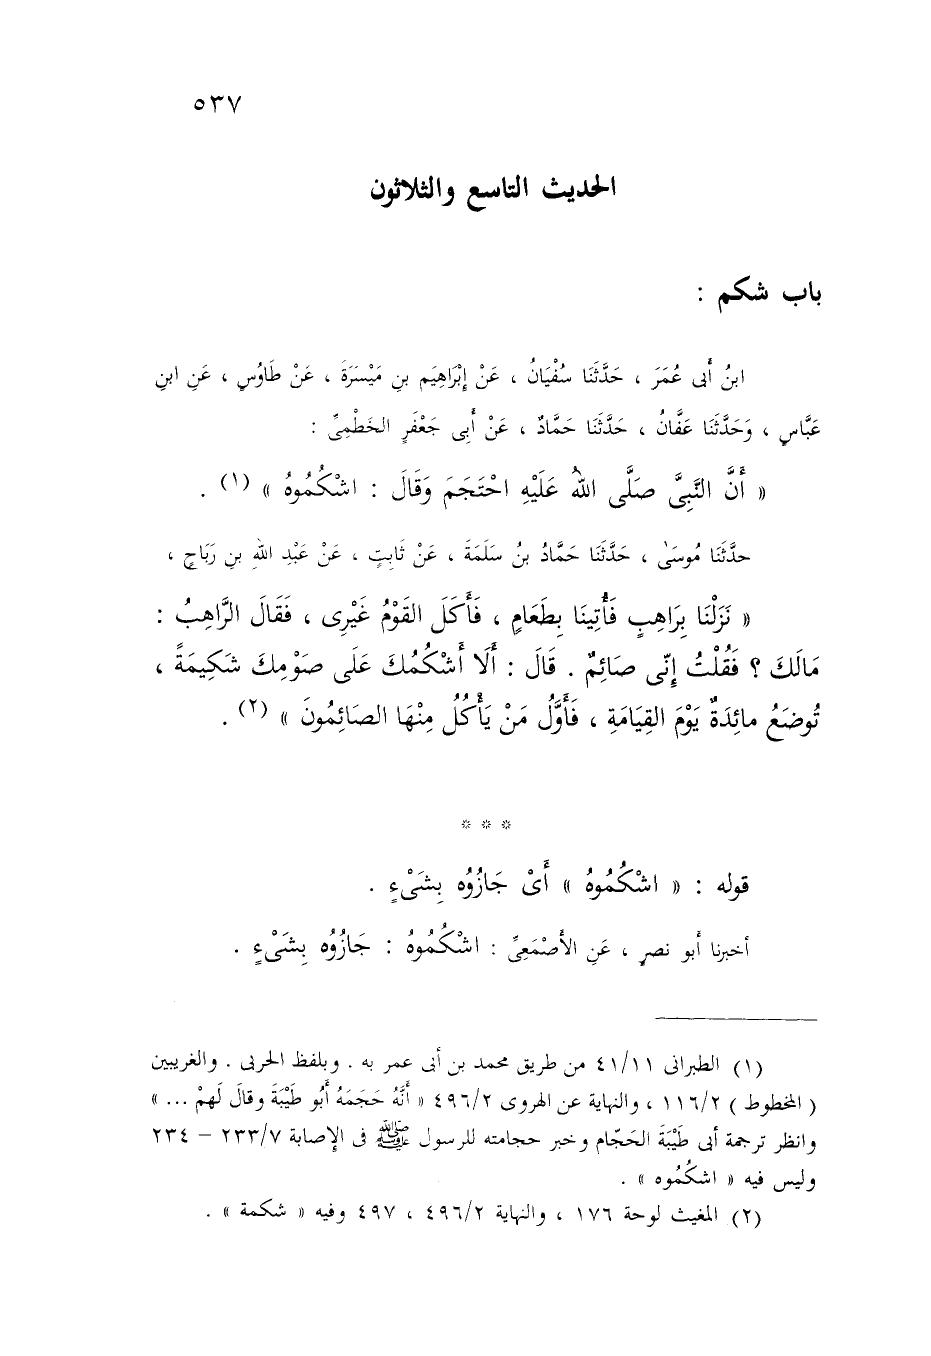 ٥٣٧
الحديث التاسع والثلاثون
باب شكم :
ابنُ أَبى عُمَرَ ، حَدَّثَنَا سُفْيَانُ ، عَنْ إِبْرَاهِيَم بنِ مَيْسَرَةَ ، عَنْ طَاوُسٍ ، عَنِ ابنِ
عَبَّاسٍ ، وَحَدَّثَنَا عَفَّانُ ، حَدَّثَنَا حَمَّادٌ ، عَنْ أَبِى جَعْفَرٍ الخَطْمِىِّ :
« أَنَّ النَّبِىَّ صَلَّى اللهُ عَلَيْهِ احْتَجَمَ وَقَالَ : اشْكُمُوهُ » (١) .
حدَّثَنَا مُوسَىٰ ، حَدَّثَنَا حَمَّادُ بنُ سَلَمَةَ ، عَنْ ثَابِتٍ ، عَنْ عَبْدِ اللهِ بنِ رَبَاحٍ ،
« نَزَلْنَا بِرَاهِبٍ فَأُتِينَا بِطَعَامٍ ، فَأَكَلَ القَوْمُ غَيْرِى ، فَقَالَ الرَّاهِبُ :
مَالَكَ ؟ فَقُلْتُ إِنّى صَائِمٌ . قَالَ : أَلَا أَشْكُمُكَ عَلَى صَوْمِكَ شَكِيمَةً ،
تُوضَعُ مائِدَةٌ يَوْمَ القِيَامَةِ ، فَأَوَّلُ مَنْ يَأْكُلُ مِنْهَا الصَائِمُونَ » (٢) .
* * *
قوله : « اشْكُمُوهُ » أَىْ جَازُوُه بِشَىْءٍ .
أخبرنا أَبو نصرٍ ، عَنِ الأَصْمَعِىِّ : اشْكُمُوهُ : جَازُوُه بِشَىْءٍ .
(١) الطبرانى ٤١/١١ من طريق محمد بن أبى عمر به . وبلفظ الحربى . والغريبين
( المخطوط ) ١١٦/٢ ، والنهاية عن الهروى ٤٩٦/٢ « أَنَّهُ حَجَمَهُ أَبُو طَيْبَةَ وقالَ لَهمْ ... »
وانظر ترجمة أبى طَيْبَةَ الحَجّام وخبر حجامته للرسول ﷺ فى الإصابة ٢٣٣/٧ – ٢٣٤
وليس فيه « اشكُمُوه » .
(٢) المغيث لوحة ١٧٦ ، والنهاية ٤٩٦/٢ ، ٤٩٧ وفيه « شكمة » .